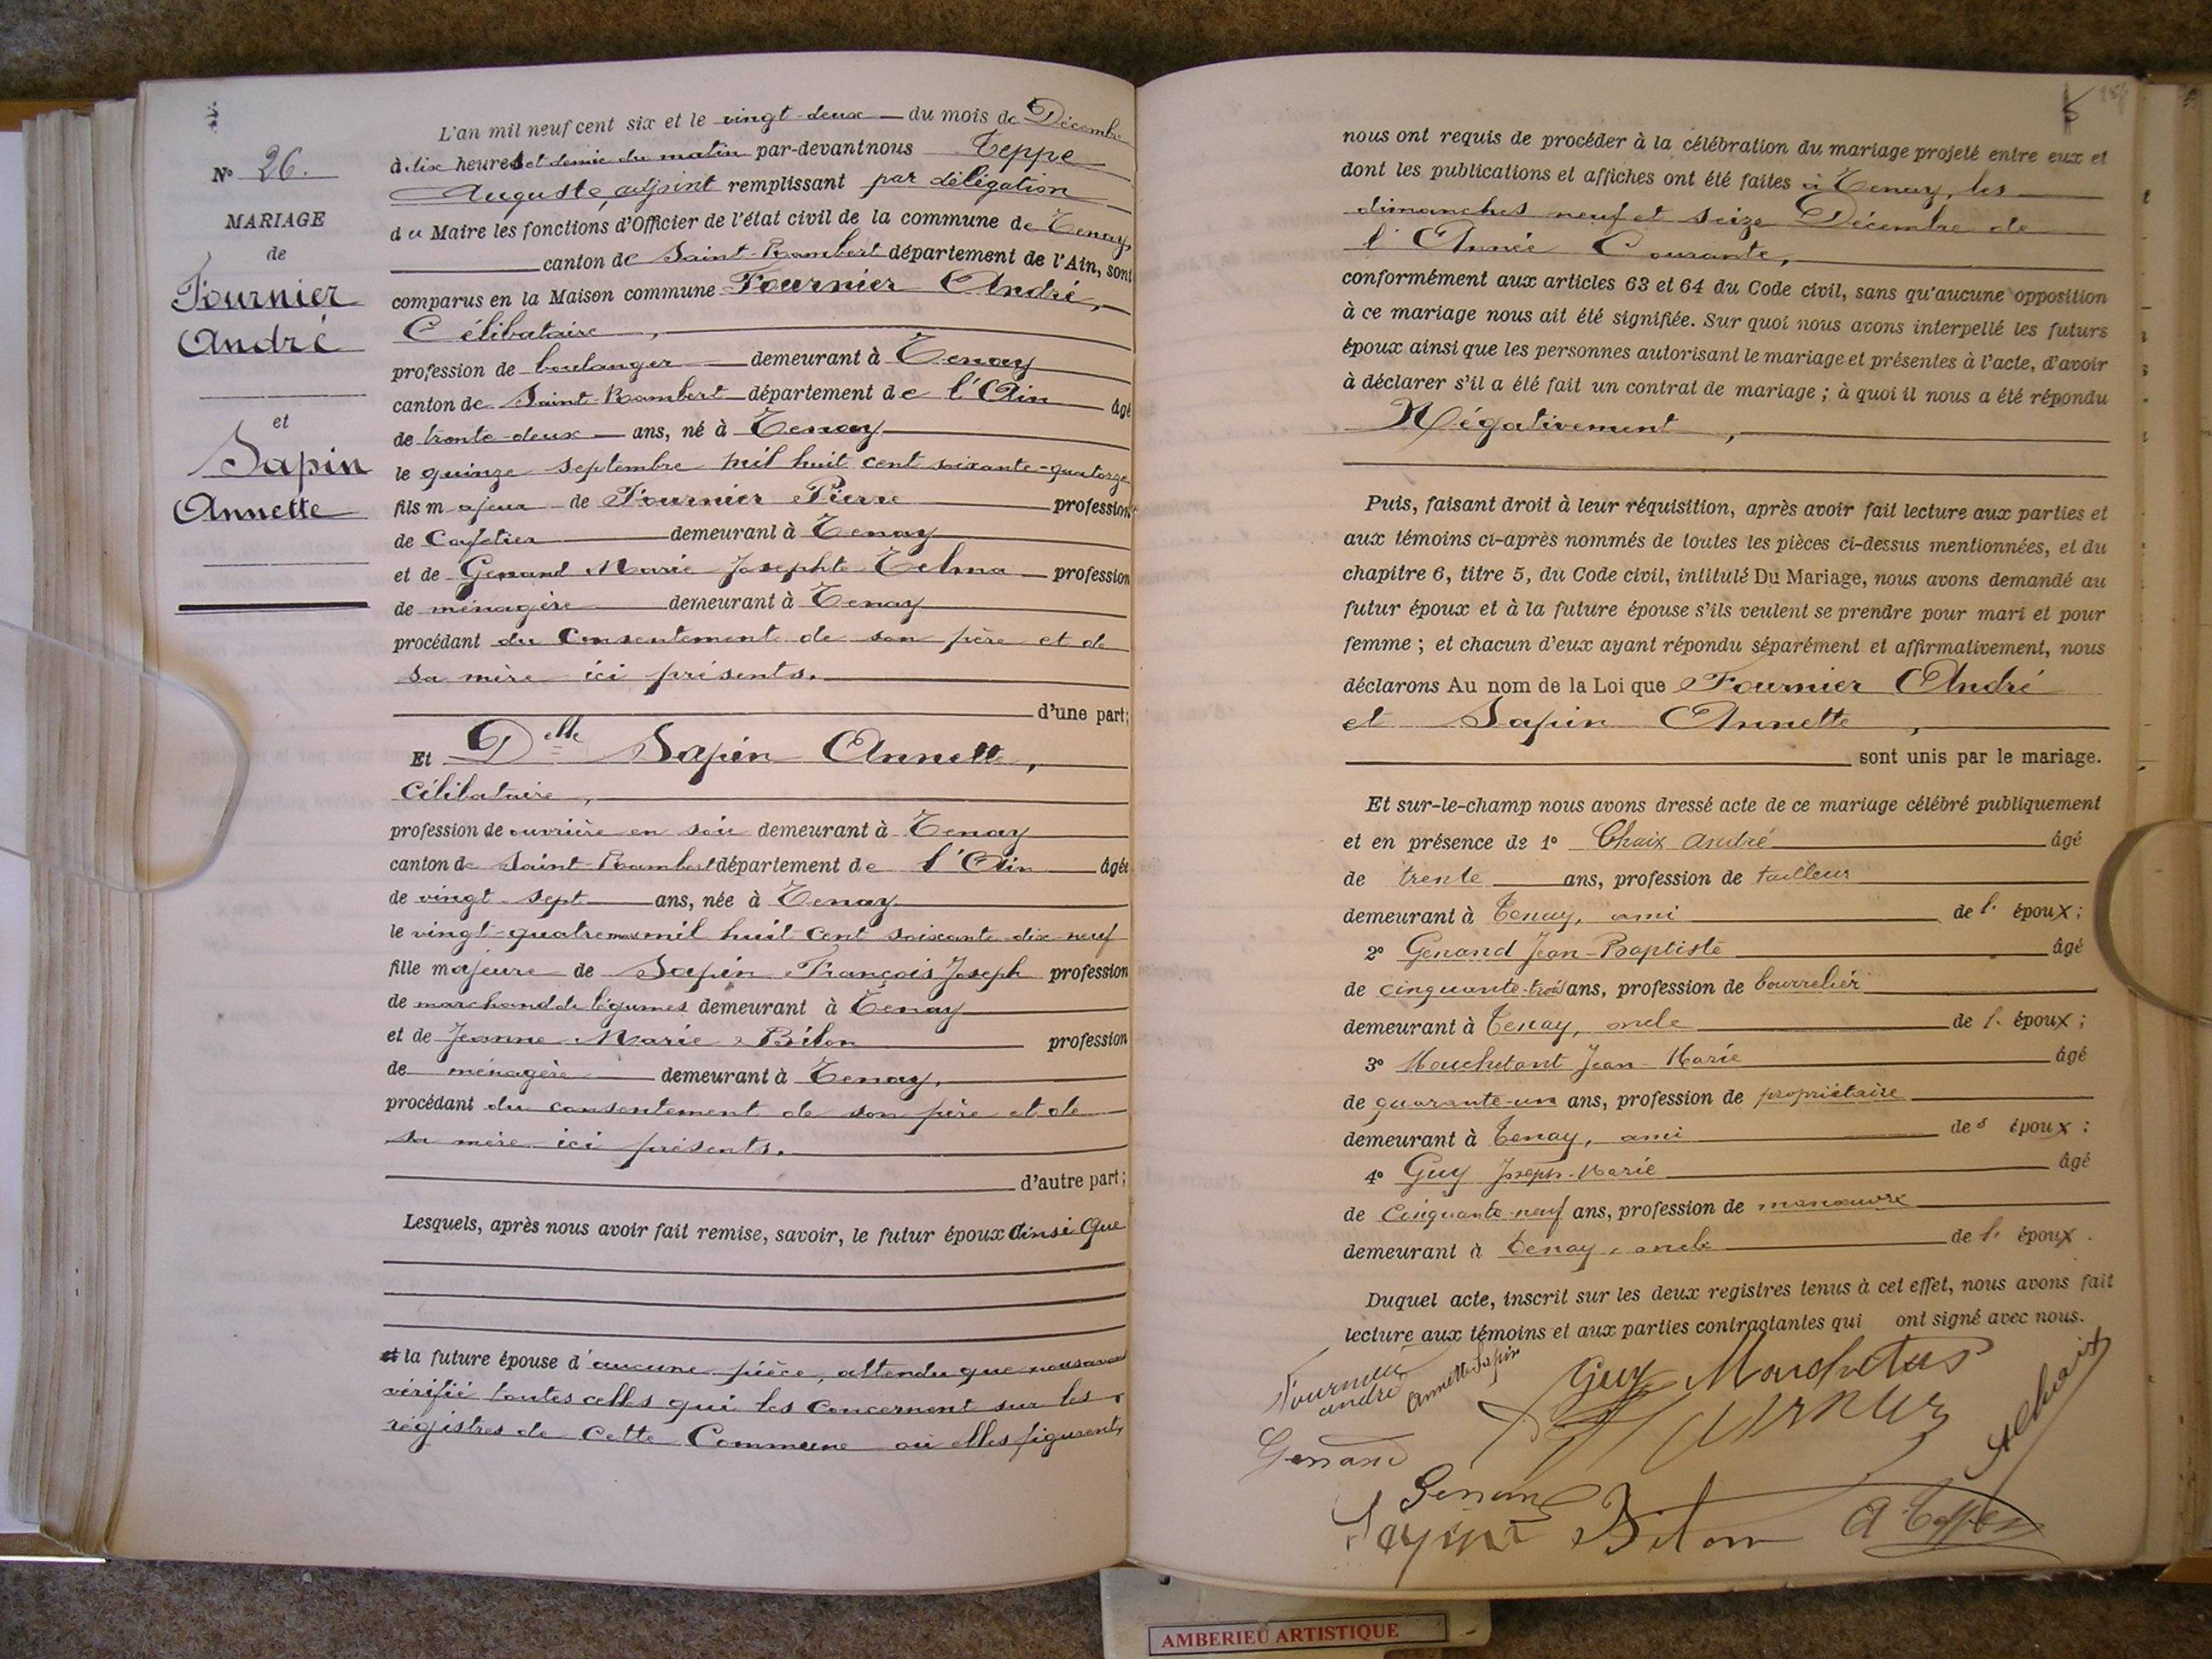 N° 26.
MARIAGE
de
Fournier
André
et
Sapin
Annette
L'an mil neuf cent six et le vingt-deux du mois de Décembre
à dix heures et demie du matin par-devant nous Teppe
Auguste, adjoint remplissant par délégation
du Maire les fonctions d'Officier de l'état civil de la commune de Tenay
canton de Saint-Rambert département de l'Ain, sont
comparus en la Maison commune Fournier André,
Célibataire,
profession de boulanger demeurant à Tenay
canton de Saint-Rambert département de l'Ain âgé
de trente-deux ans, né à Tenay
le quinze septembre mil huit cent soixante-quatorze
fils majeur de Fournier Pierre profession
de Cafetier demeurant à Tenay
et de Genand Marie Josephte Telma profession
de ménagère demeurant à Tenay
procédant du Consentement de son père et de
sa mère ici présents.
d'une part;
Et Delle Sapin Annette,
Célibataire,
profession de ouvrière en soie demeurant à Tenay
canton de Saint-Rambert département de l'Ain âgée
de vingt-sept ans, née à Tenay
le vingt-quatre mars mil huit cent soixante-dix-neuf
fille majeure de Sapin François Joseph profession
de marchand de légumes demeurant à Tenay
et de Jeanne Marie Bilon profession
de ménagère demeurant à Tenay,
procédant du consentement de son père et de
sa mère ici présents.
d'autre part;
Lesquels, après nous avoir fait remise, savoir, le futur époux ainsi que
et la future épouse d'aucune pièce, attendu que nous avons
vérifié toutes celles qui les Concernent sur les
régistres de Cette Commune où elles figurent,
nous ont requis de procéder à la célébration du mariage projeté entre eux et
dont les publications et affiches ont été faites à Tenay, les
dimanches neuf et seize Décembre de
l'Année Courante,
conformément aux articles 63 et 64 du Code civil, sans qu'aucune opposition
à ce mariage nous ait été signifiée. Sur quoi nous avons interpellé les futurs
époux ainsi que les personnes autorisant le mariage et présentes à l'acte, d'avoir
à déclarer s'il a été fait un contrat de mariage; à quoi il nous a été répondu
Négativement,
Puis, faisant droit à leur réquisition, après avoir fait lecture aux parties et
aux témoins ci-après nommés de toutes les pièces ci-dessus mentionnées, et du
chapitre 6, titre 5, du Code civil, intitulé Du Mariage, nous avons demandé au
futur époux et à la future épouse s'ils veulent se prendre pour mari et pour
femme; et chacun d'eux ayant répondu séparément et affirmativement, nous
déclarons Au nom de la Loi que Fournier André
et Sapin Annette,
sont unis par le mariage.
Et sur-le-champ nous avons dressé acte de ce mariage célébré publiquement
et en présence de 1° Chaix André âgé
de trente ans, profession de tailleur
demeurant à Tenay, ami de l' époux;
2° Genand Jean-Baptiste âgé
de cinquante-trois ans, profession de bourrelier
demeurant à Tenay, oncle de l' époux;
3° Mouchetant Jean-Marie âgé
de quarante-un ans, profession de propriétaire
demeurant à Tenay, ami des époux;
4° Guy Joseph-Marie âgé
de Cinquante-neuf ans, profession de manœuvre
demeurant à Tenay, oncle de l' époux.
Duquel acte, inscrit sur les deux registres tenus à cet effet, nous avons fait
lecture aux témoins et aux parties contractantes qui ont signé avec nous.
Fournier
andré
Annette Sapin
Guy
Genand
Genand
Bilon
A Teppe
AMBERIEU ARTISTIQUE